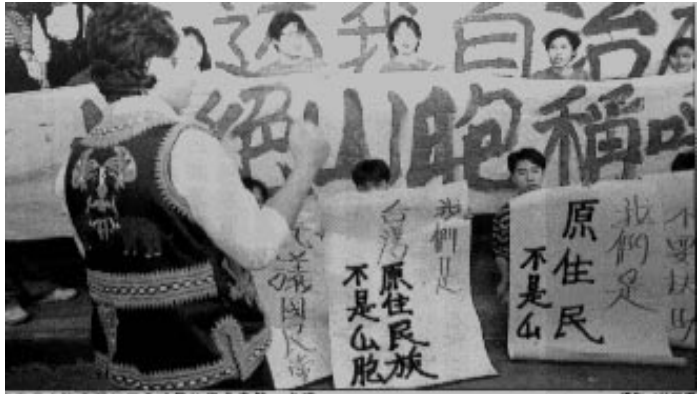 還我自治
絕山胞稱呼
抗議國民
我們是
台灣原住民族
不是山胞
我們是
原住民
不是山
不要